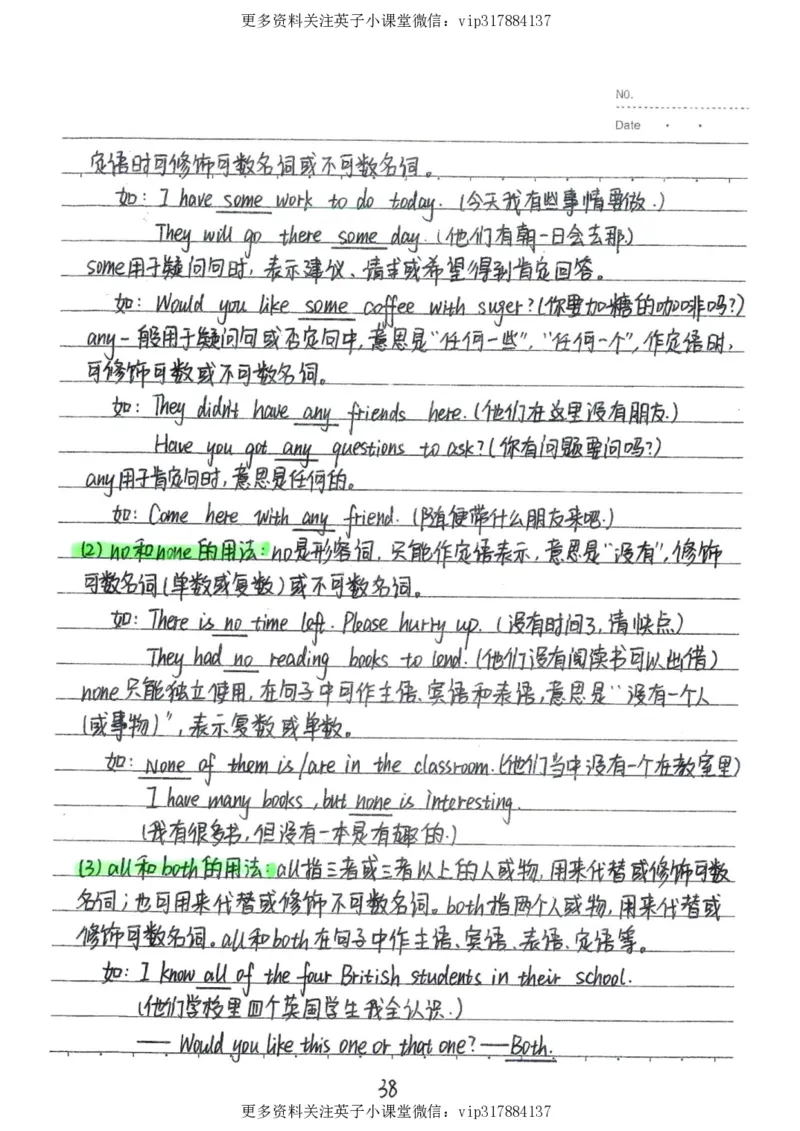 更多资料关注英子小课堂微信：vip317884137
NO.
Date
定语时可修饰可数名词或不可数名词。
如：I have some work to do today.（今天我有些事情要做.）
They will go there some day.（他们有朝一日会去那.）
some用于疑问句时，表示建议、请求或希望得到肯定回答。
如：Would you like some coffee with suger?（你要加糖的咖啡吗?）
any一般用于疑问句或否定句中，意思是“任何一些”，“任何一个”，作定语时，
可修饰可数或不可数名词。
如：They didn't have any friends here.（他们在这里没有朋友.）
Have you got any questions to ask?（你有问题要问吗?）
any用于肯定句时，意思是任何的。
如：Come here with any friend.（随便带什么朋友来吧.）
(2) no和none的用法：no是形容词，只能作定语表示，意思是“没有”，修饰
可数名词（单数或复数）或不可数名词。
如：There is no time left. Please hurry up.（没有时间了，请快点）
They had no reading books to lend.（他们没有阅读书可以出借）
none只能独立使用，在句子中可作主语、宾语和表语，意思是“没有一个人
（或事物）”，表示复数或单数。
如：None of them is/are in the classroom.（他们当中没有一个在教室里）
I have many books, but none is interesting.
（我有很多书，但没有一本是有趣的.）
(3) all和both的用法：all指三者或三者以上的人或物，用来代替或修饰可数
名词；也可用来代替或修饰不可数名词。both指两个人或物，用来代替或
修饰可数名词。all和both在句子中作主语、宾语、表语、定语等。
如：I know all of the four British students in their school.
（他们学校里四个英国学生我全认识.）
—— Would you like this one or that one? —— Both.
38
更多资料关注英子小课堂微信：vip317884137